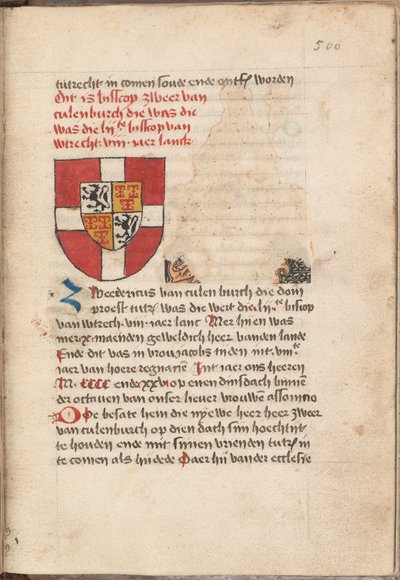 500
tutrecht in comen soude ende ontfaen worden
Dit is bisscop zweer van
culenburch die was die
was die lij.te bisscop van
wtrecht. viii. iaer lanck
Zweedericus van culenburch die dom
proest tutrecht was die wert die lij.te biscop
van wtrecht. viii. iaer lanc Mer hi en was
mer .x. maenden geweldich heer vanden lande
Ende dit was in vrou iacobs tiden int. viii.te
iaer van hoere regnacien Int iaer ons heeren
M. CCCC ende xxvi op enen dinsdach binnen
der octaven van onser liever vrouwen assomcio
Doe besate hem die nyewe heer heer zweer
van culenburch op dien dach sijn hoechtijt
te houden ende mit sijnen vrienden tutrecht in
te comen als hij dede Daer hij vander ecclesie